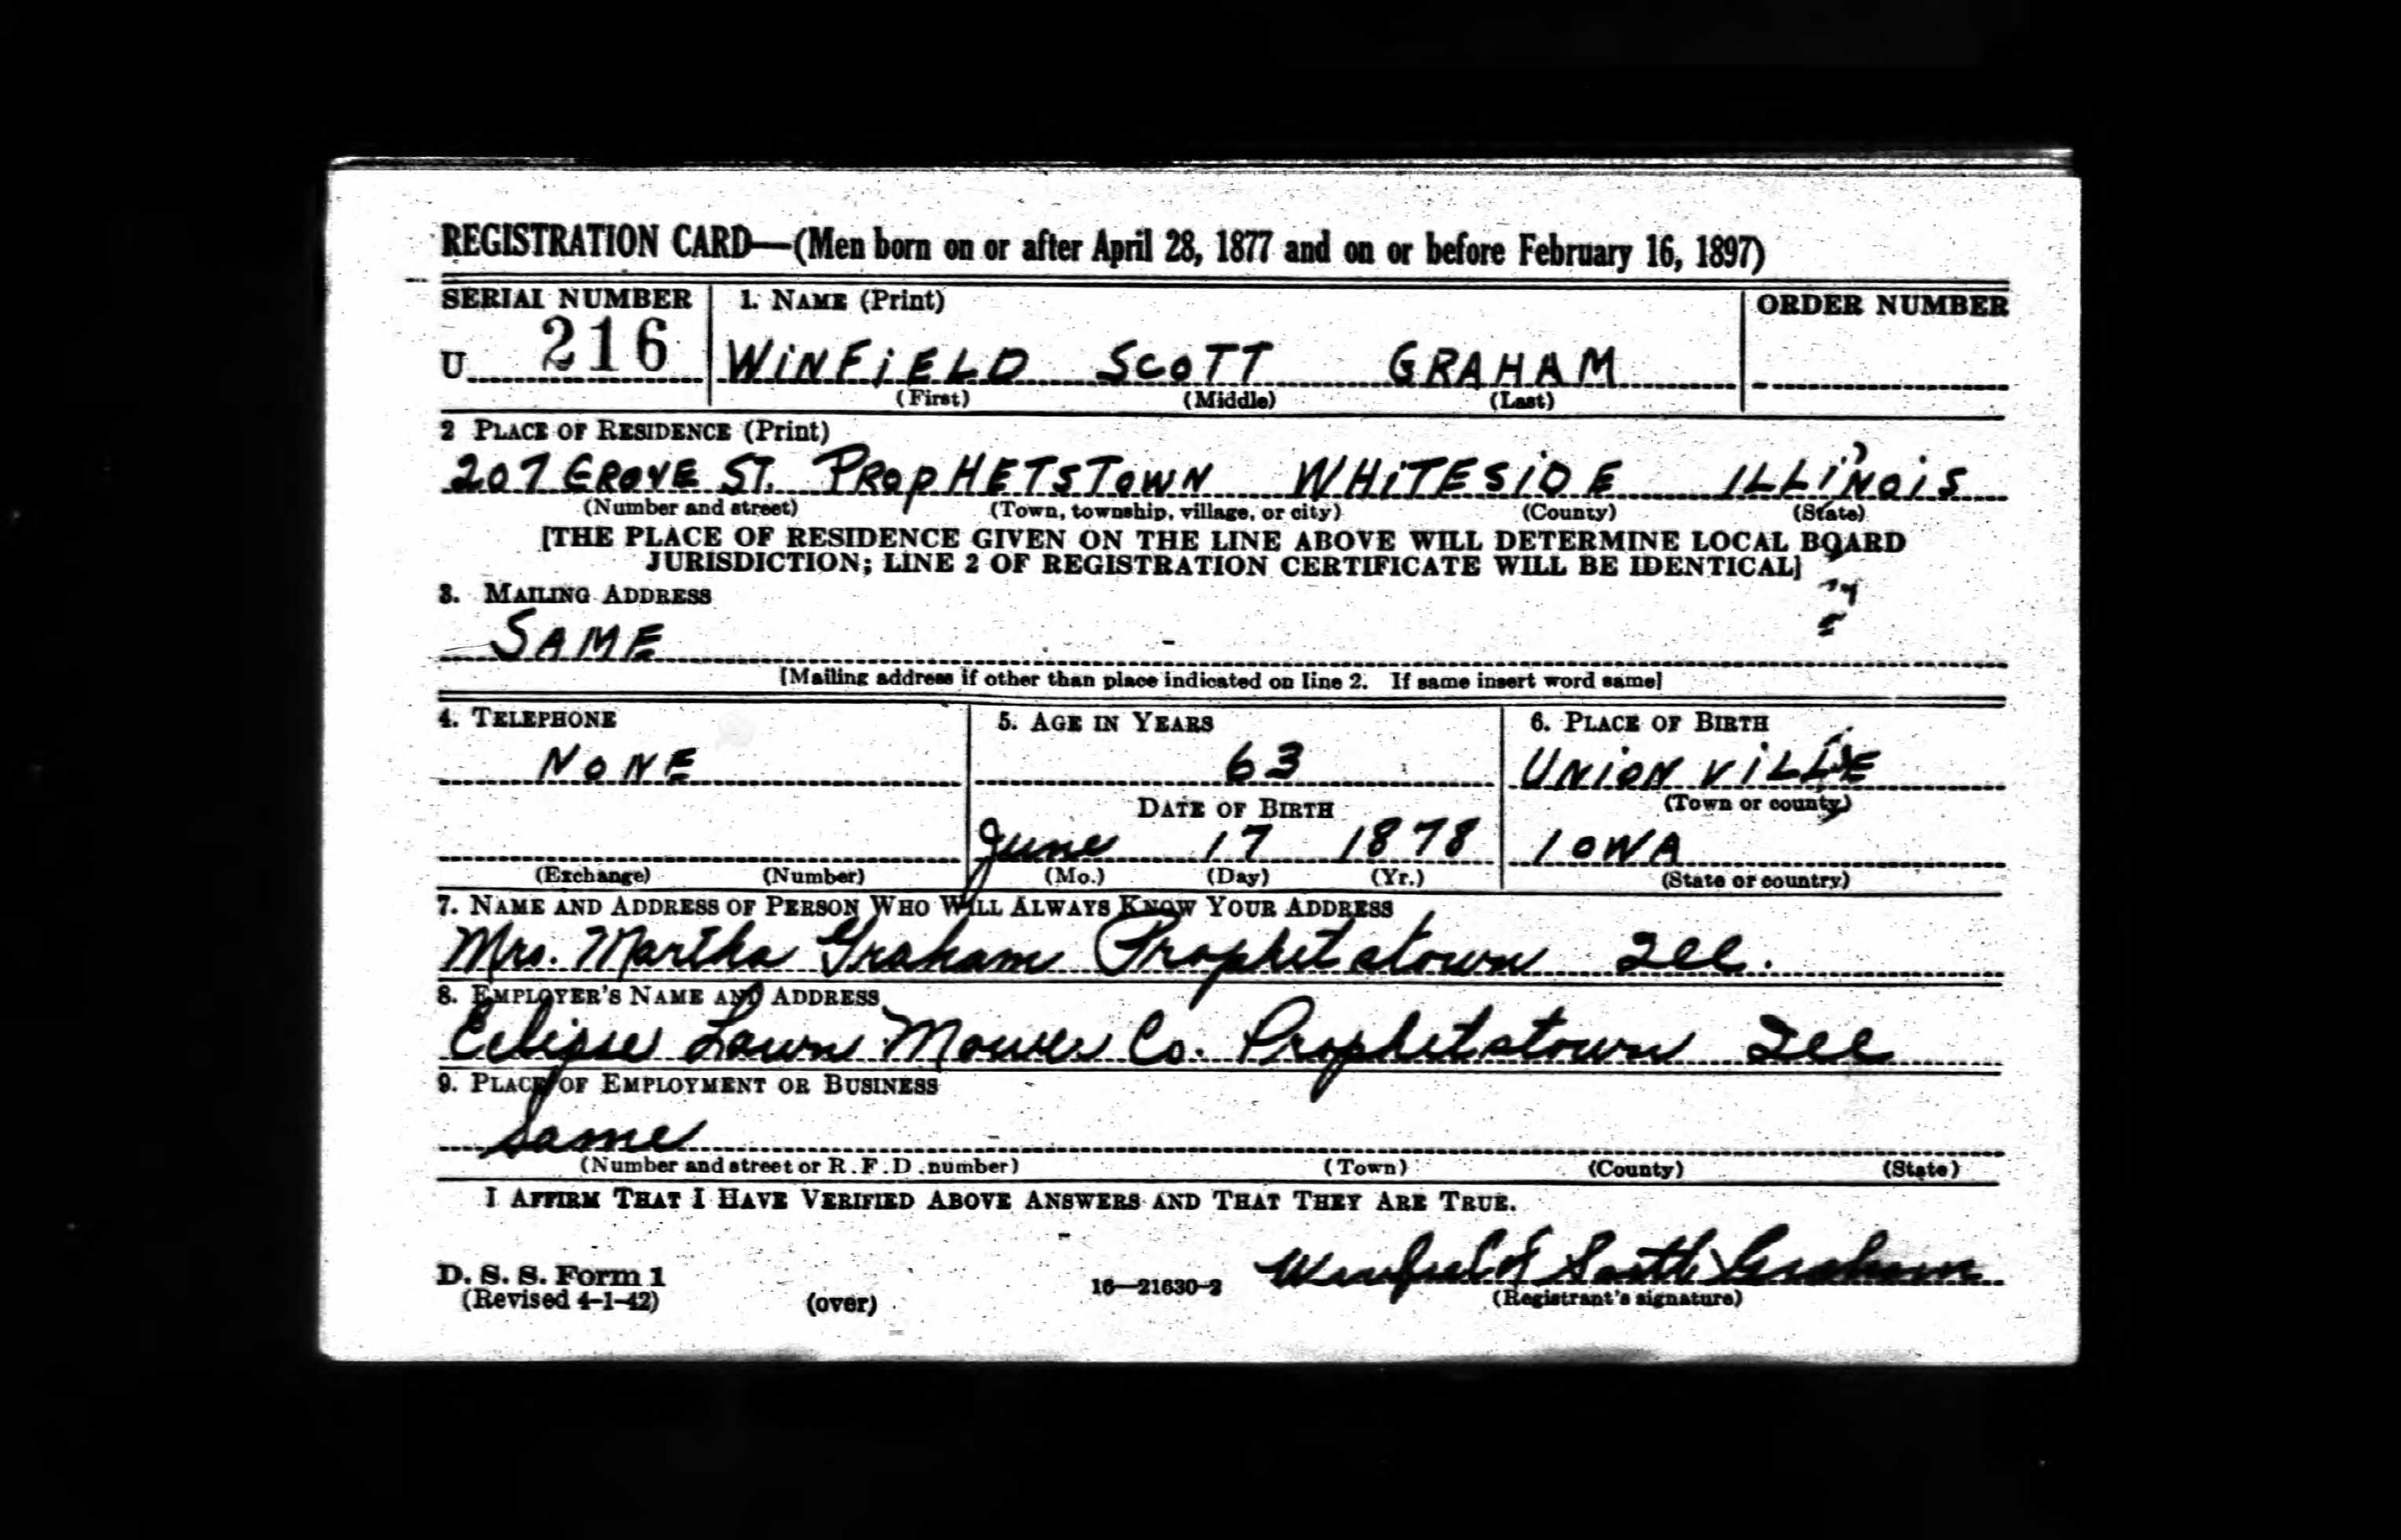 REGISTRATION CARD—(Men born on or after April 28, 1877 and on or before February 16, 1897)
SERIAL NUMBER 1. NAME (Print) ORDER NUMBER
U 216 WINFIELD SCOTT GRAHAM
(First) (Middle) (Last)
2 PLACE OF RESIDENCE (Print)
207 GROVE ST. PROPHETSTOWN WHITESIDE ILLINOIS
(Number and street) (Town, township, village, or city) (County) (State)
[THE PLACE OF RESIDENCE GIVEN ON THE LINE ABOVE WILL DETERMINE LOCAL BOARD
JURISDICTION; LINE 2 OF REGISTRATION CERTIFICATE WILL BE IDENTICAL]
3. MAILING ADDRESS
SAME
[Mailing address if other than place indicated on line 2. If same insert word same]
4. TELEPHONE 5. AGE IN YEARS 6. PLACE OF BIRTH
NONE 63 UNIONVILLE
DATE OF BIRTH (Town or county)
June 17 1878 IOWA
(Exchange) (Number) (Mo.) (Day) (Yr.) (State or country)
7. NAME AND ADDRESS OF PERSON WHO WILL ALWAYS KNOW YOUR ADDRESS
Mrs. Martha Graham Prophetstown Ill.
8. EMPLOYER'S NAME AND ADDRESS
Eclipse Lawn Mower Co. Prophetstown Ill
9. PLACE OF EMPLOYMENT OR BUSINESS
Same
(Number and street or R. F. D. number) (Town) (County) (State)
I AFFIRM THAT I HAVE VERIFIED ABOVE ANSWERS AND THAT THEY ARE TRUE.
Winfield Scott Graham
D. S. S. Form 1
(Revised 4-1-42) (over) 16—21630-2 (Registrant's signature)